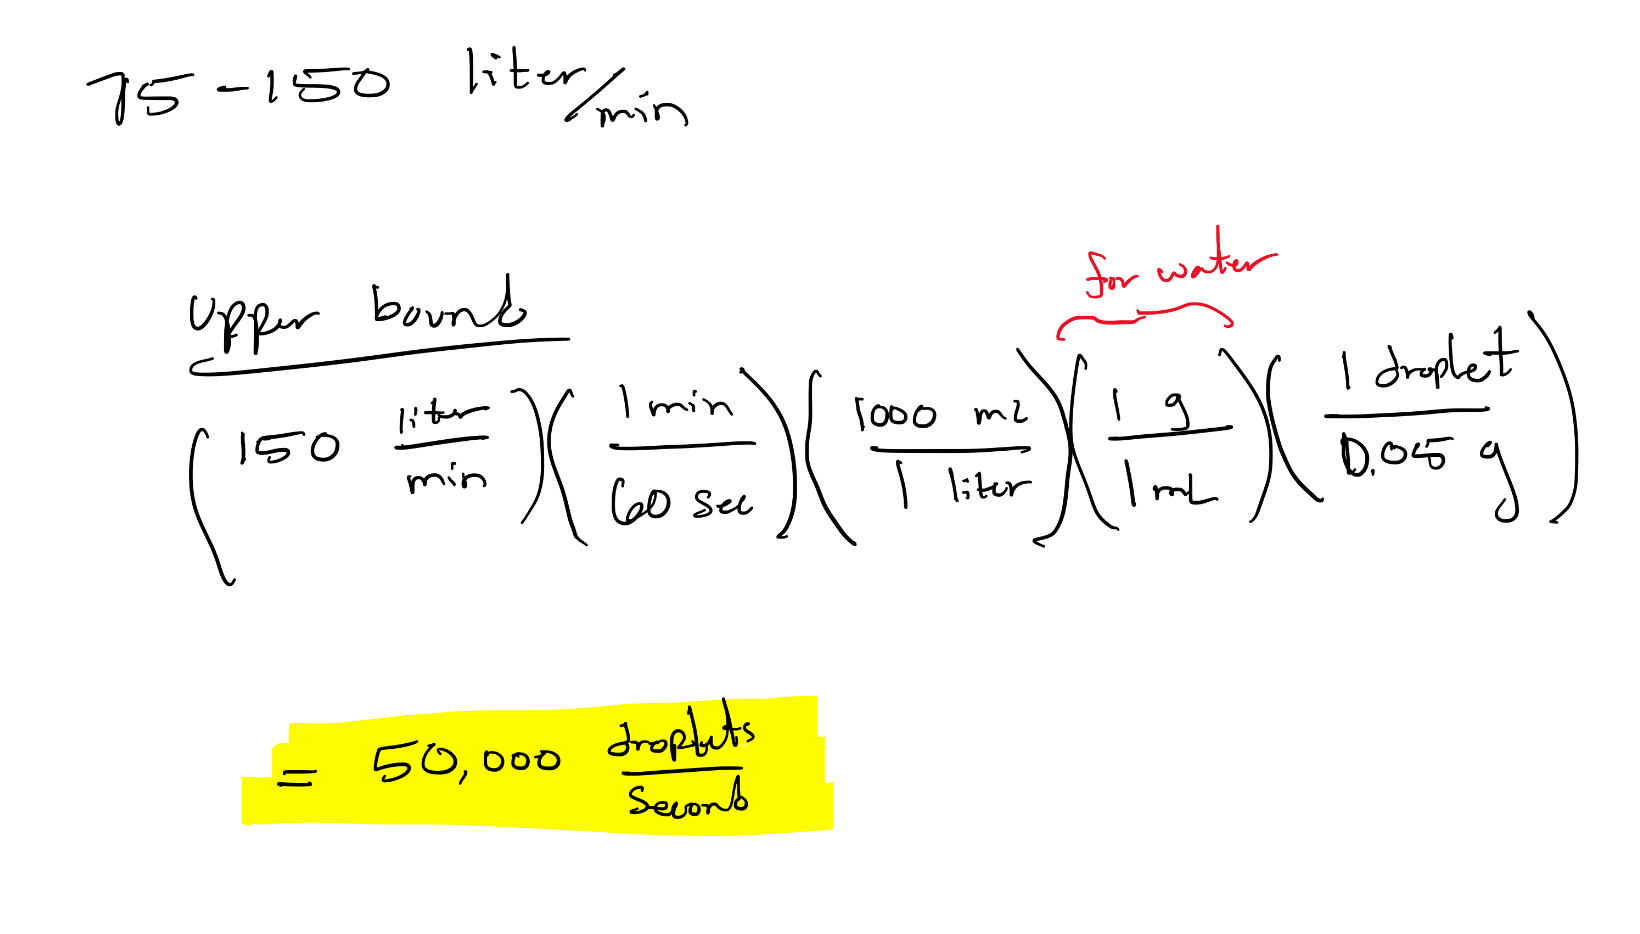 75 - 150 liter/min
for water
Upper bound
(150 liter/min)(1 min/60 sec)(1000 mL/1 liter)(1 g/1 mL)(1 droplet/0.05 g)
= 50,000 droplets/second